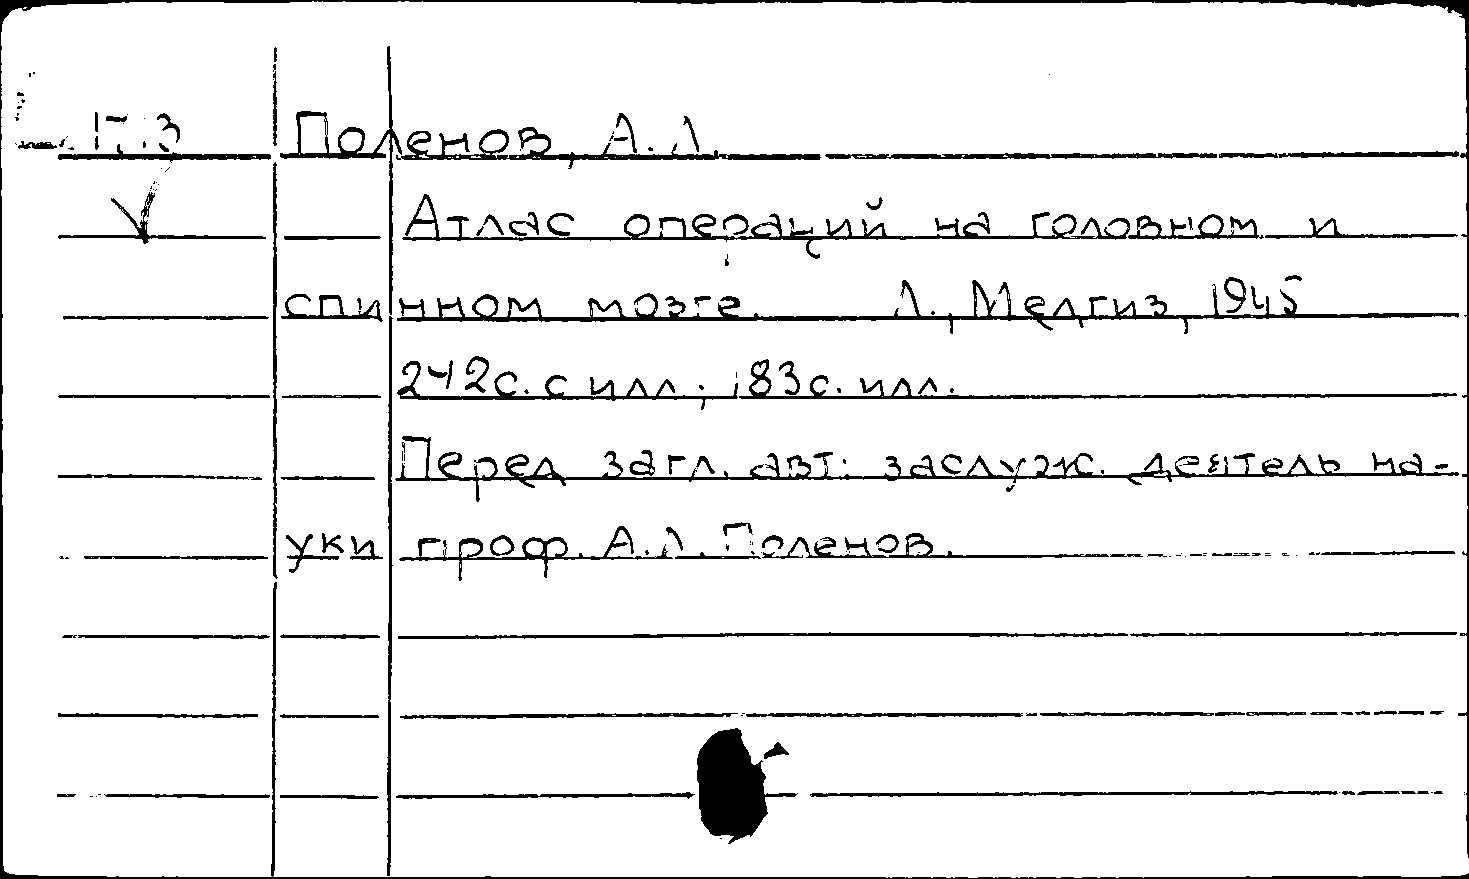 Поленов, А. Л.
Атлас операций на головном и
спинном мозге. Л., Медгиз, 1945
242с. с илл.; 183с. илл.
Перед загл. авт.: заслуж. деятель на-
уки проф. А. Л. Поленов.